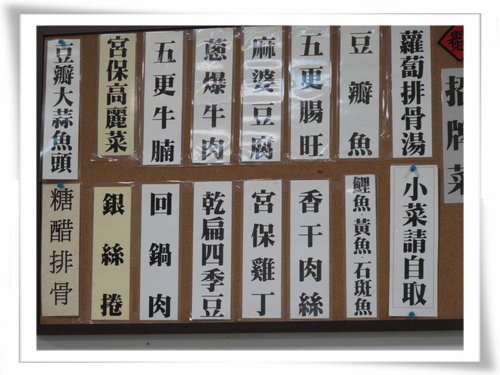 招牌菜
蘿蔔排骨湯
豆瓣魚
五更腸旺
麻婆豆腐
蔥爆牛肉
五更牛腩
宮保高麗菜
豆瓣大蒜魚頭
小菜請自取
鯉魚黃魚石斑魚
香干肉絲
宮保雞丁
乾扁四季豆
回鍋肉
銀絲捲
糖醋排骨